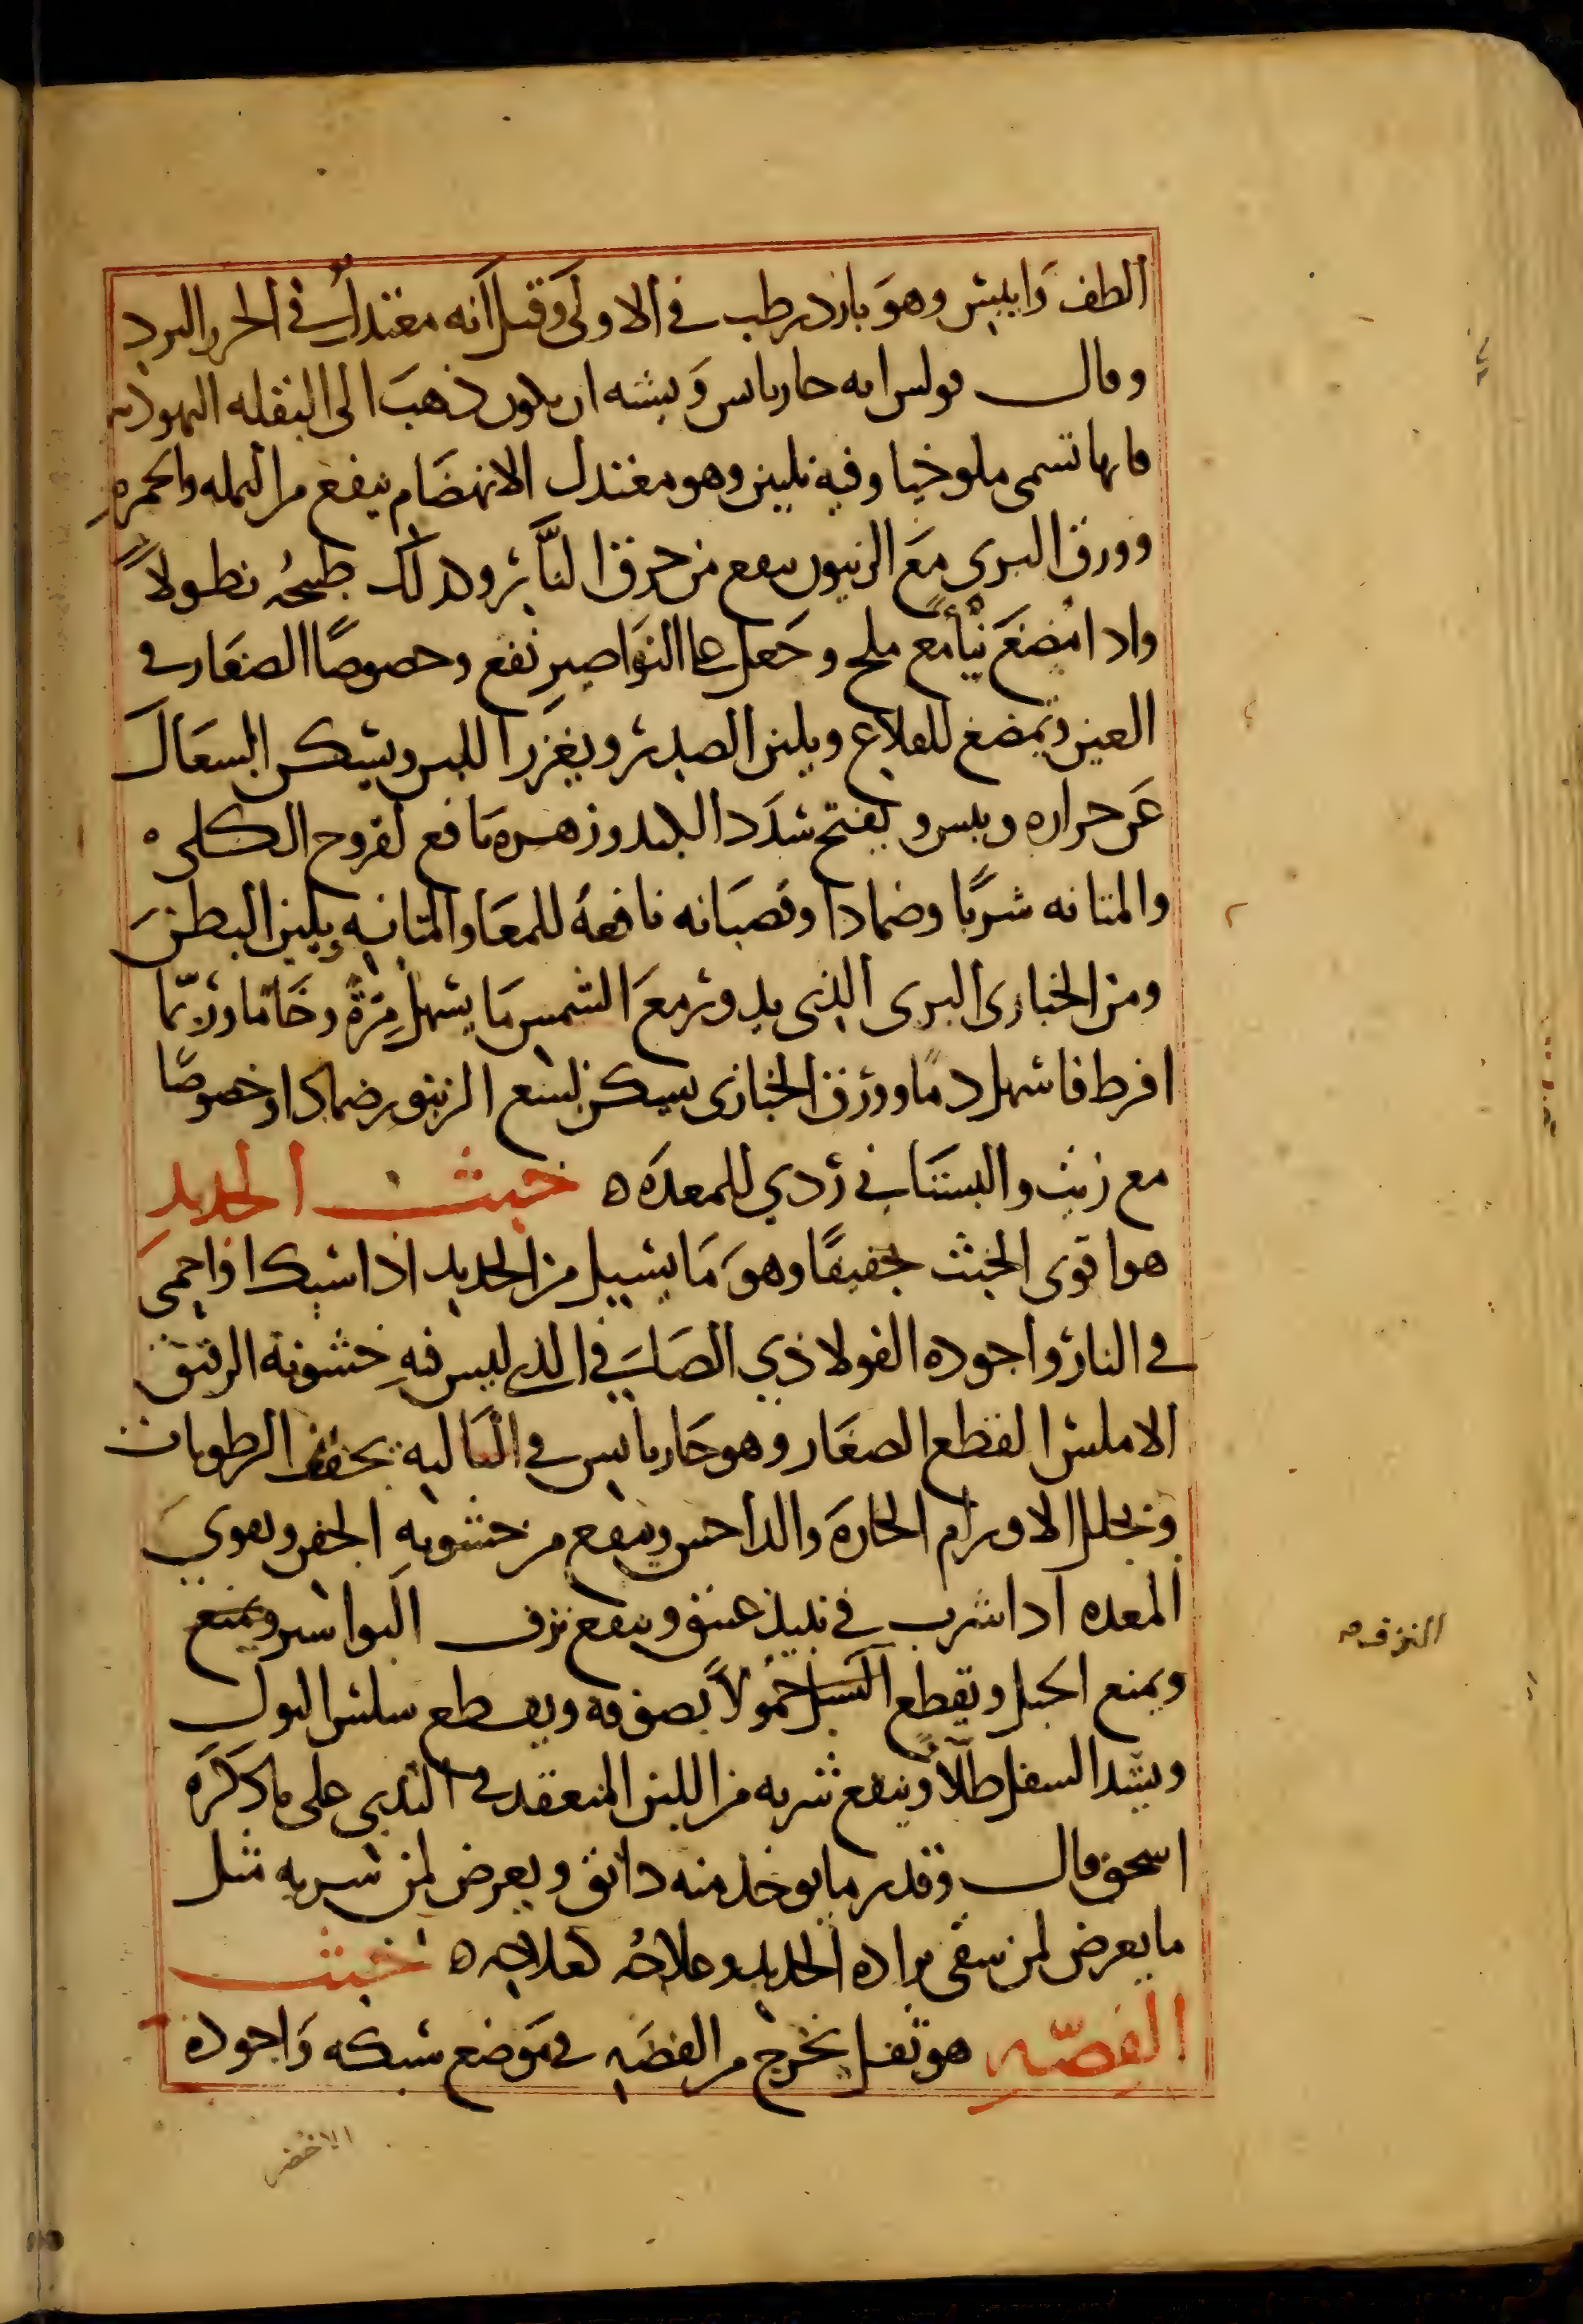 الطف وايبس وهو بارد رطب في الاولى وقيل انه معتدل في الحر والبرد
وقال بولس انه حار يابس ويشبه ان يكون ذهب الى البقله اليهوديه
فانها تسمى ملوخيا وفيه تليين وهو معتدل الانهضام ينفع من النمله والحمره
وورق البري مع الزيتون ينفع من حرق النار وكذلك طبيخه نطولاً
واذا مضغ نيأ مع ملح وجعل على النواصير نفع وخصوصاً الصغار في
العين ويمضغ للقلاع ويلين الصدر ويغزر اللبن ويسكن السعال
عن حراره ويبس ويفتح سدد الكبد وزهره نافع لقروح الكلى
والمثانه شرباً وضمادا وقضبانه نافعة للمعا والمثانه ويلين البطن
ومن الخبازى البرى الذي يدور مع الشمس ما يسهل مرة وخاما وربما
افرط فاسهل دما وورق الخبازى يسكن لسع الزنبور ضمادا وخصوصا
مع زيت والبستاني ردي للمعده ه خبث الحديد
هو اقوى الخبث تجفيفاً وهو ما يسيل من الحديد اذا سبك او احمي
في النار واجوده الفولاذي الصافي الذي ليس فيه خشونة الرقيق
الاملس القطع الصغار وهو حار يابس في الثالثه يجفف الرطوبات
ويحلل الاورام الحاره والداحس وينفع من خشونه الجفن ويقوي
المعده اذا شرب في نبيذ عتيق وينفع نزف البواسير ويمنع
ويمنع الحبل ويقطع السبل حمولاً بصوفه ويقطع سلس البول
ويشد السفل طلاً وينفع شربه من اللبن المنعقد في الثدي على ما ذكره
اسحق قال وقدر ما يوخذ منه دانق ويعرض لمن شربه مثل
ما يعرض لمن سقى براده الحديد وعلاجه كعلاجه ه خبث
الفضّه هو ثفل يخرج من الفضه في موضع سبكه واجوده
النزف صه
الاخضر